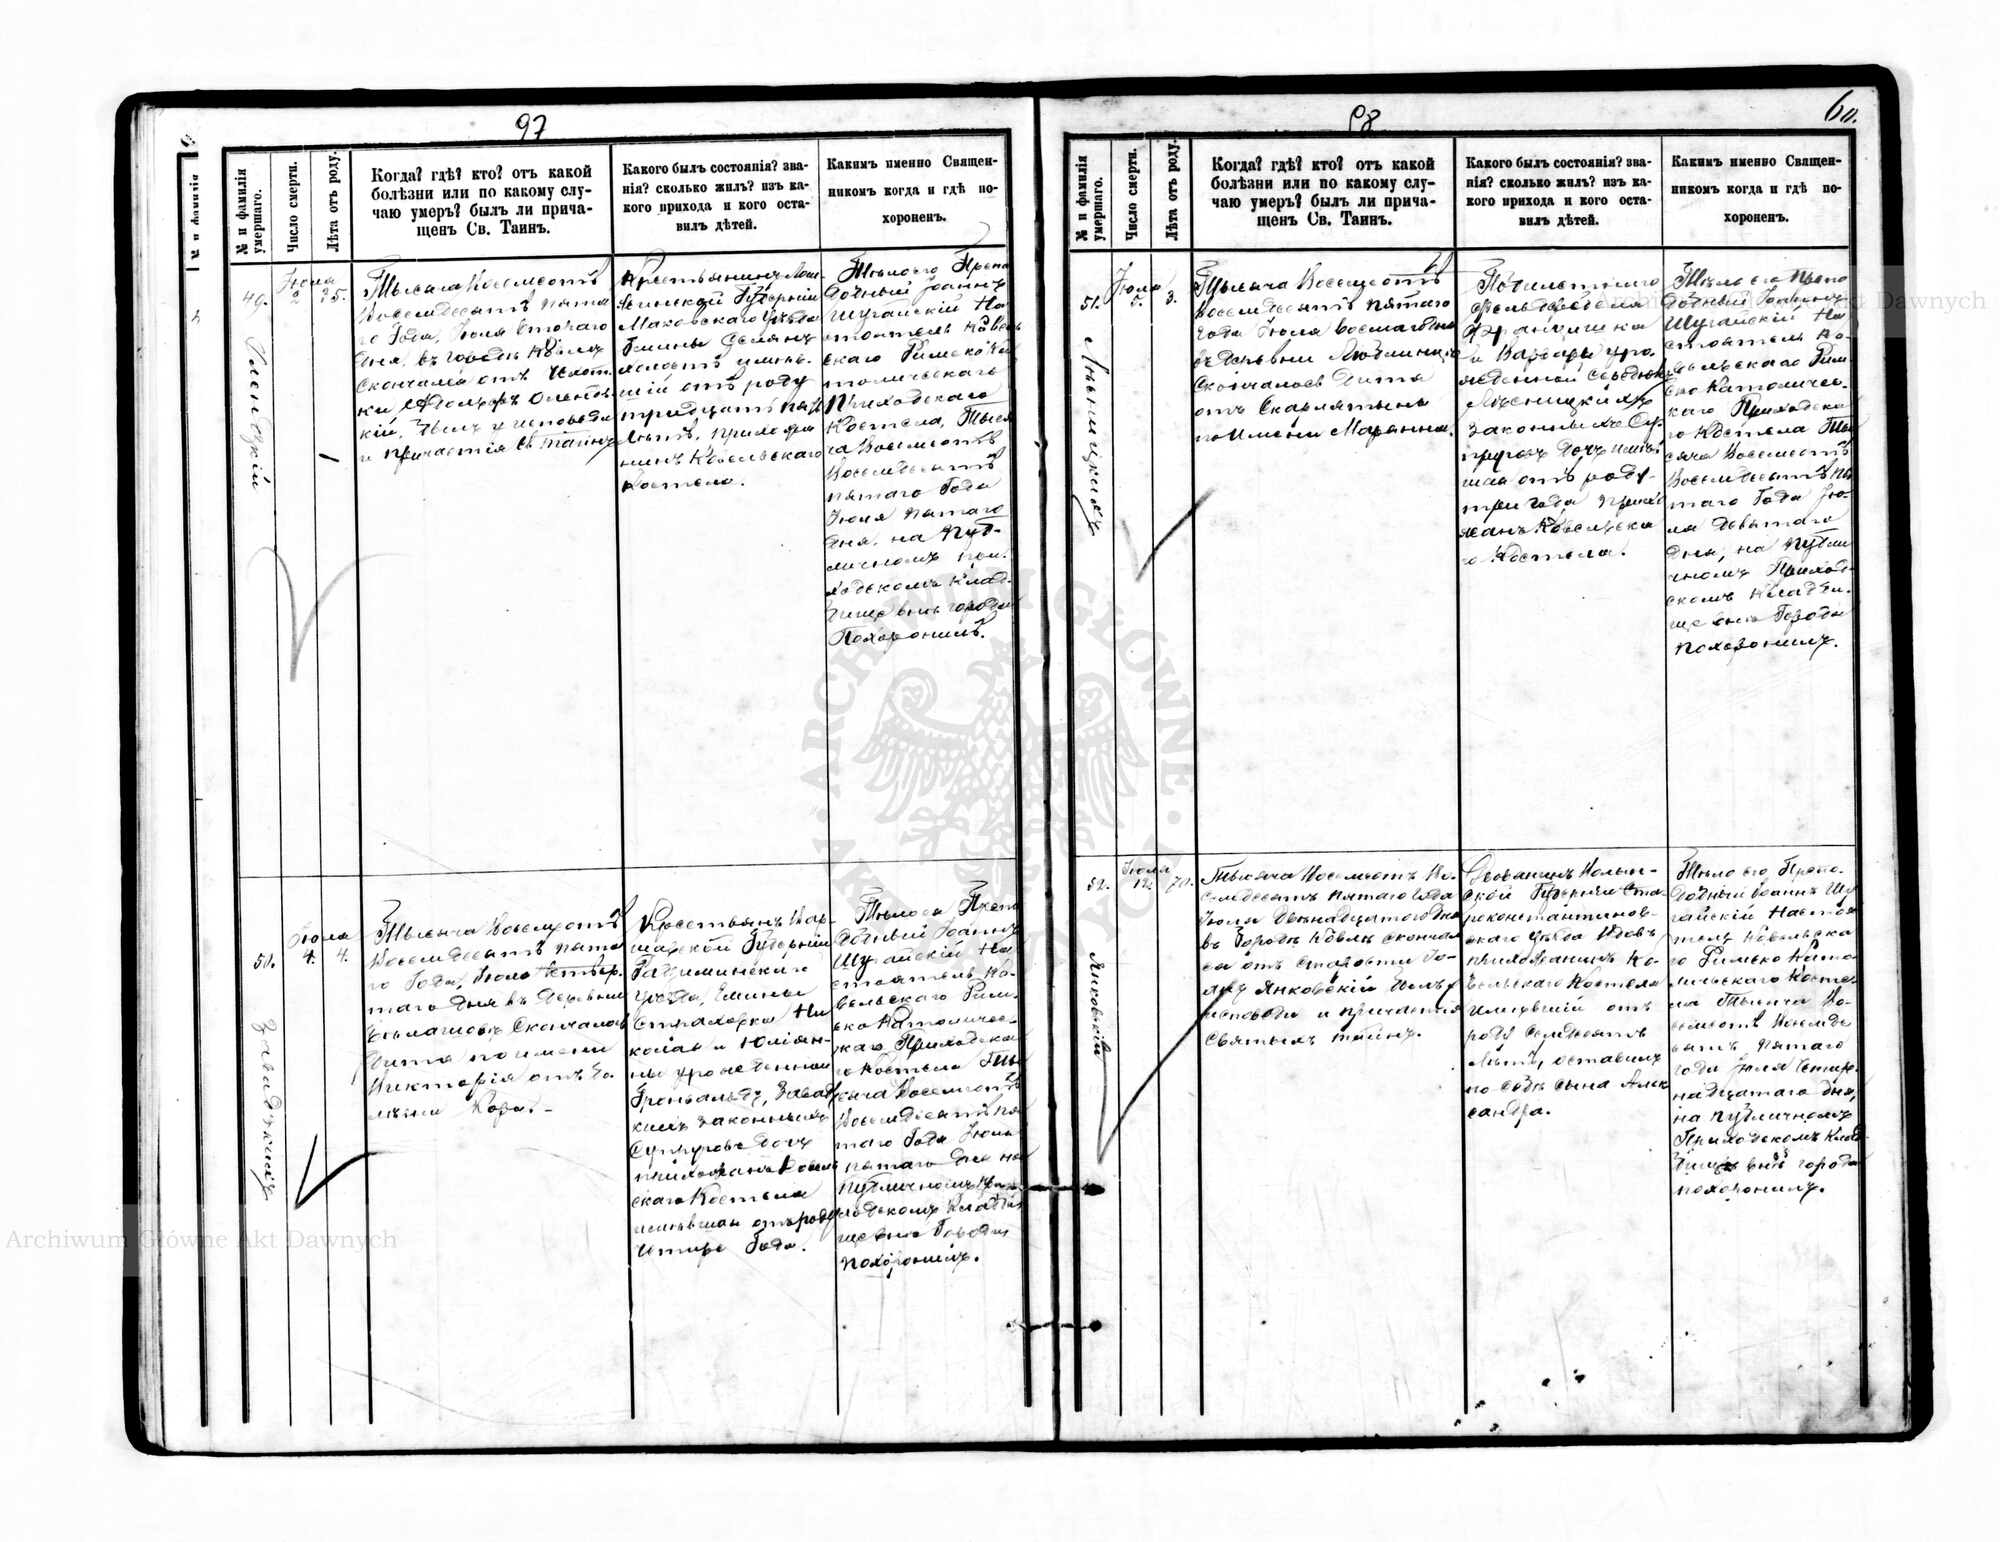 97
№ и фамилія умершаго.
Число смерти.
Лѣта отъ роду.
Когда? гдѣ? кто? отъ какой
болѣзни или по какому слу-
чаю умеръ? былъ ли прича-
щенъ Св. Таинъ.
Какого былъ состоянія? зва-
нія? сколько жилъ? изъ ка-
кого прихода и кого оста-
вилъ дѣтей.
Какимъ именно Священ-
никомъ когда и гдѣ по-
хороненъ.
49.
Іюля
2
35.
Тысяча Восемсотъ
Восемдесятъ пята
го Года, Іюля втораго
дня, въ городѣ Ковлѣ
Скончался отъ
кій, былъ у исповѣди
и причастія Св. Таинъ
Крестьянинъ Лом-
жинской Губерніи
Маковскаго Уѣзда
Гмины
шій отъ роду
тридцать пять
лѣтъ, прихожа
нинъ Ковельскаго
Костела.
Тѣло его Препо
добный Іоаннъ
Шугайскій На
стоятель Ковель
скаго Римско Ка
толическаго
Приходскаго
Костела, Тыся
ча Восемсотъ
Восемдесятъ
пятаго Года
Іюля пятаго
дня, на Пуб-
личномъ При-
ходскомъ Клад-
бище внѣ города
Похоронилъ.
50.
Іюля
4.
4.
Тысяча Восемсотъ
Восемдесятъ пята
го Года, Іюля четвер-
таго дня въ Деревни
Скончалось
Дитя по имени
Викторія отъ Бо
лѣзни Кори.
Крестьянъ Вар-
шавской Губерніи
Радиминскаго
Уѣзда, Гмины
Страховка Ни
колая и Юліян-
ны урожденной
законныхъ
Супруговъ дочь
прихожанъ Ковель
скаго Костела
имѣвшая отъ роду
четыре Года.
Тѣло ея Препо
добный Іоаннъ
Шугайскій На
стоятель Ко-
вельскаго Рим-
ско Католичес-
каго Приходска
го Костела Ты-
сяча Восемсотъ
Восемдесятъ пя
таго Года Іюля
пятаго дня на
публичномъ При
ходскомъ Кладби
ще внѣ Города
похоронилъ.
98
60.
№ и фамилія умершаго.
Число смерти.
Лѣта отъ роду.
Когда? гдѣ? кто? отъ какой
болѣзни или по какому слу-
чаю умеръ? былъ ли прича-
щенъ Св. Таинъ.
Какого былъ состоянія? зва-
нія? сколько жилъ? изъ ка-
кого прихода и кого оста-
вилъ дѣтей.
Какимъ именно Священ-
никомъ когда и гдѣ по-
хороненъ.
51.
Лѣсницкихъ
Іюля
5.
3.
Тысяча Восемсотъ
Восемдесятъ пятаго
Года Іюля восмаго дня
въ Деревни Люблинецъ
Скончалось Дитя
отъ Скарлятыны
по Имени Марянна.
Фельдфебеля
Францишка
и Варвары уро
жденной
Лѣсницкихъ
Законныхъ Су-
пруговъ дочь имѣв
шая отъ роду
три года прихо
жанъ Ковельска
го Костела.
Тѣло его Препо
добный Іоаннъ
Шугайскій На
стоятель Ко-
вельскаго Рим-
ско Католичес-
каго Приходска
го Костела Ты
сяча Восемсотъ
Восемдесятъ пя
таго Года Ію-
ля девятаго
дня, на Публи
чномъ Приход-
скомъ Кладби-
ще внѣ Города
похоронилъ.
52.
Янковскій
Іюля
12.
70.
Тысяча Восемсотъ Во-
семдесятъ пятаго года
Іюля двѣнадцатого дня
въ Городѣ Ковлѣ скончал
ся отъ старости
Янковскій былъ у
исповѣди и причастія
Святыхъ тайнъ.
Дворянинъ Волын-
ской Губерніи Ста
роконстантинов-
скаго уѣзда вдовъ
прихожанинъ Ко-
вельскаго Костела
имѣвшій отъ
роду семдесятъ
лѣтъ, оставилъ
по себѣ сына Алек
сандра.
Тѣло его Препо-
добный Іоаннъ Шу
гайскій Настоя
тель Ковельска
го Римско Като
лическаго Косте-
ла Тысяча Во-
семсотъ Восемде
сятъ пятаго
года Іюля четыр
надцатаго дня,
на публичномъ
Приходскомъ Клад
бищѣ внѣ города
похоронилъ.
ARCHIWUM GŁÓWNE AKT DAWNYCH
Archiwum Główne Akt Dawnych
Archiwum Główne Akt Dawnych